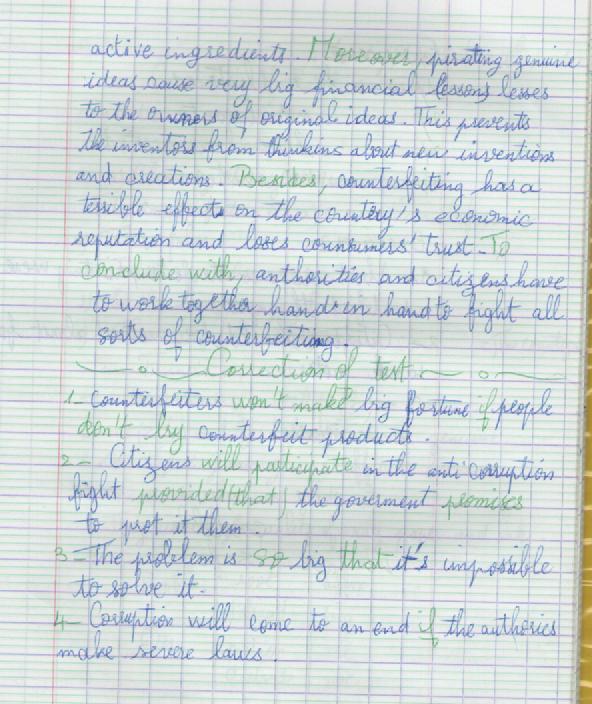 active ingredients. Moreover, pirating genuine
ideas cause very big financial lessons lesses
to the owners of original ideas. This prevents
the inventors from thinkins about new inventions
and creations. Besides, counterfeiting has a
terrible effects on the country's economic
reputation and loses counsumers' trust. To
conclude with, authorities and citizens have
to work together hand in hand to fight all
sorts of counterfeiting.
Correction of test
1_ Counterfeiters won't make big fortune if people
don't buy counterfeit products.
2_ Citizens will participate in the anti corruption
fight provided (that) the goverment promises
to prot it them.
3_ The problem is so big that it's impossible
to solve it.
4_ Corruption will come to an end if the authories
make severe laws.